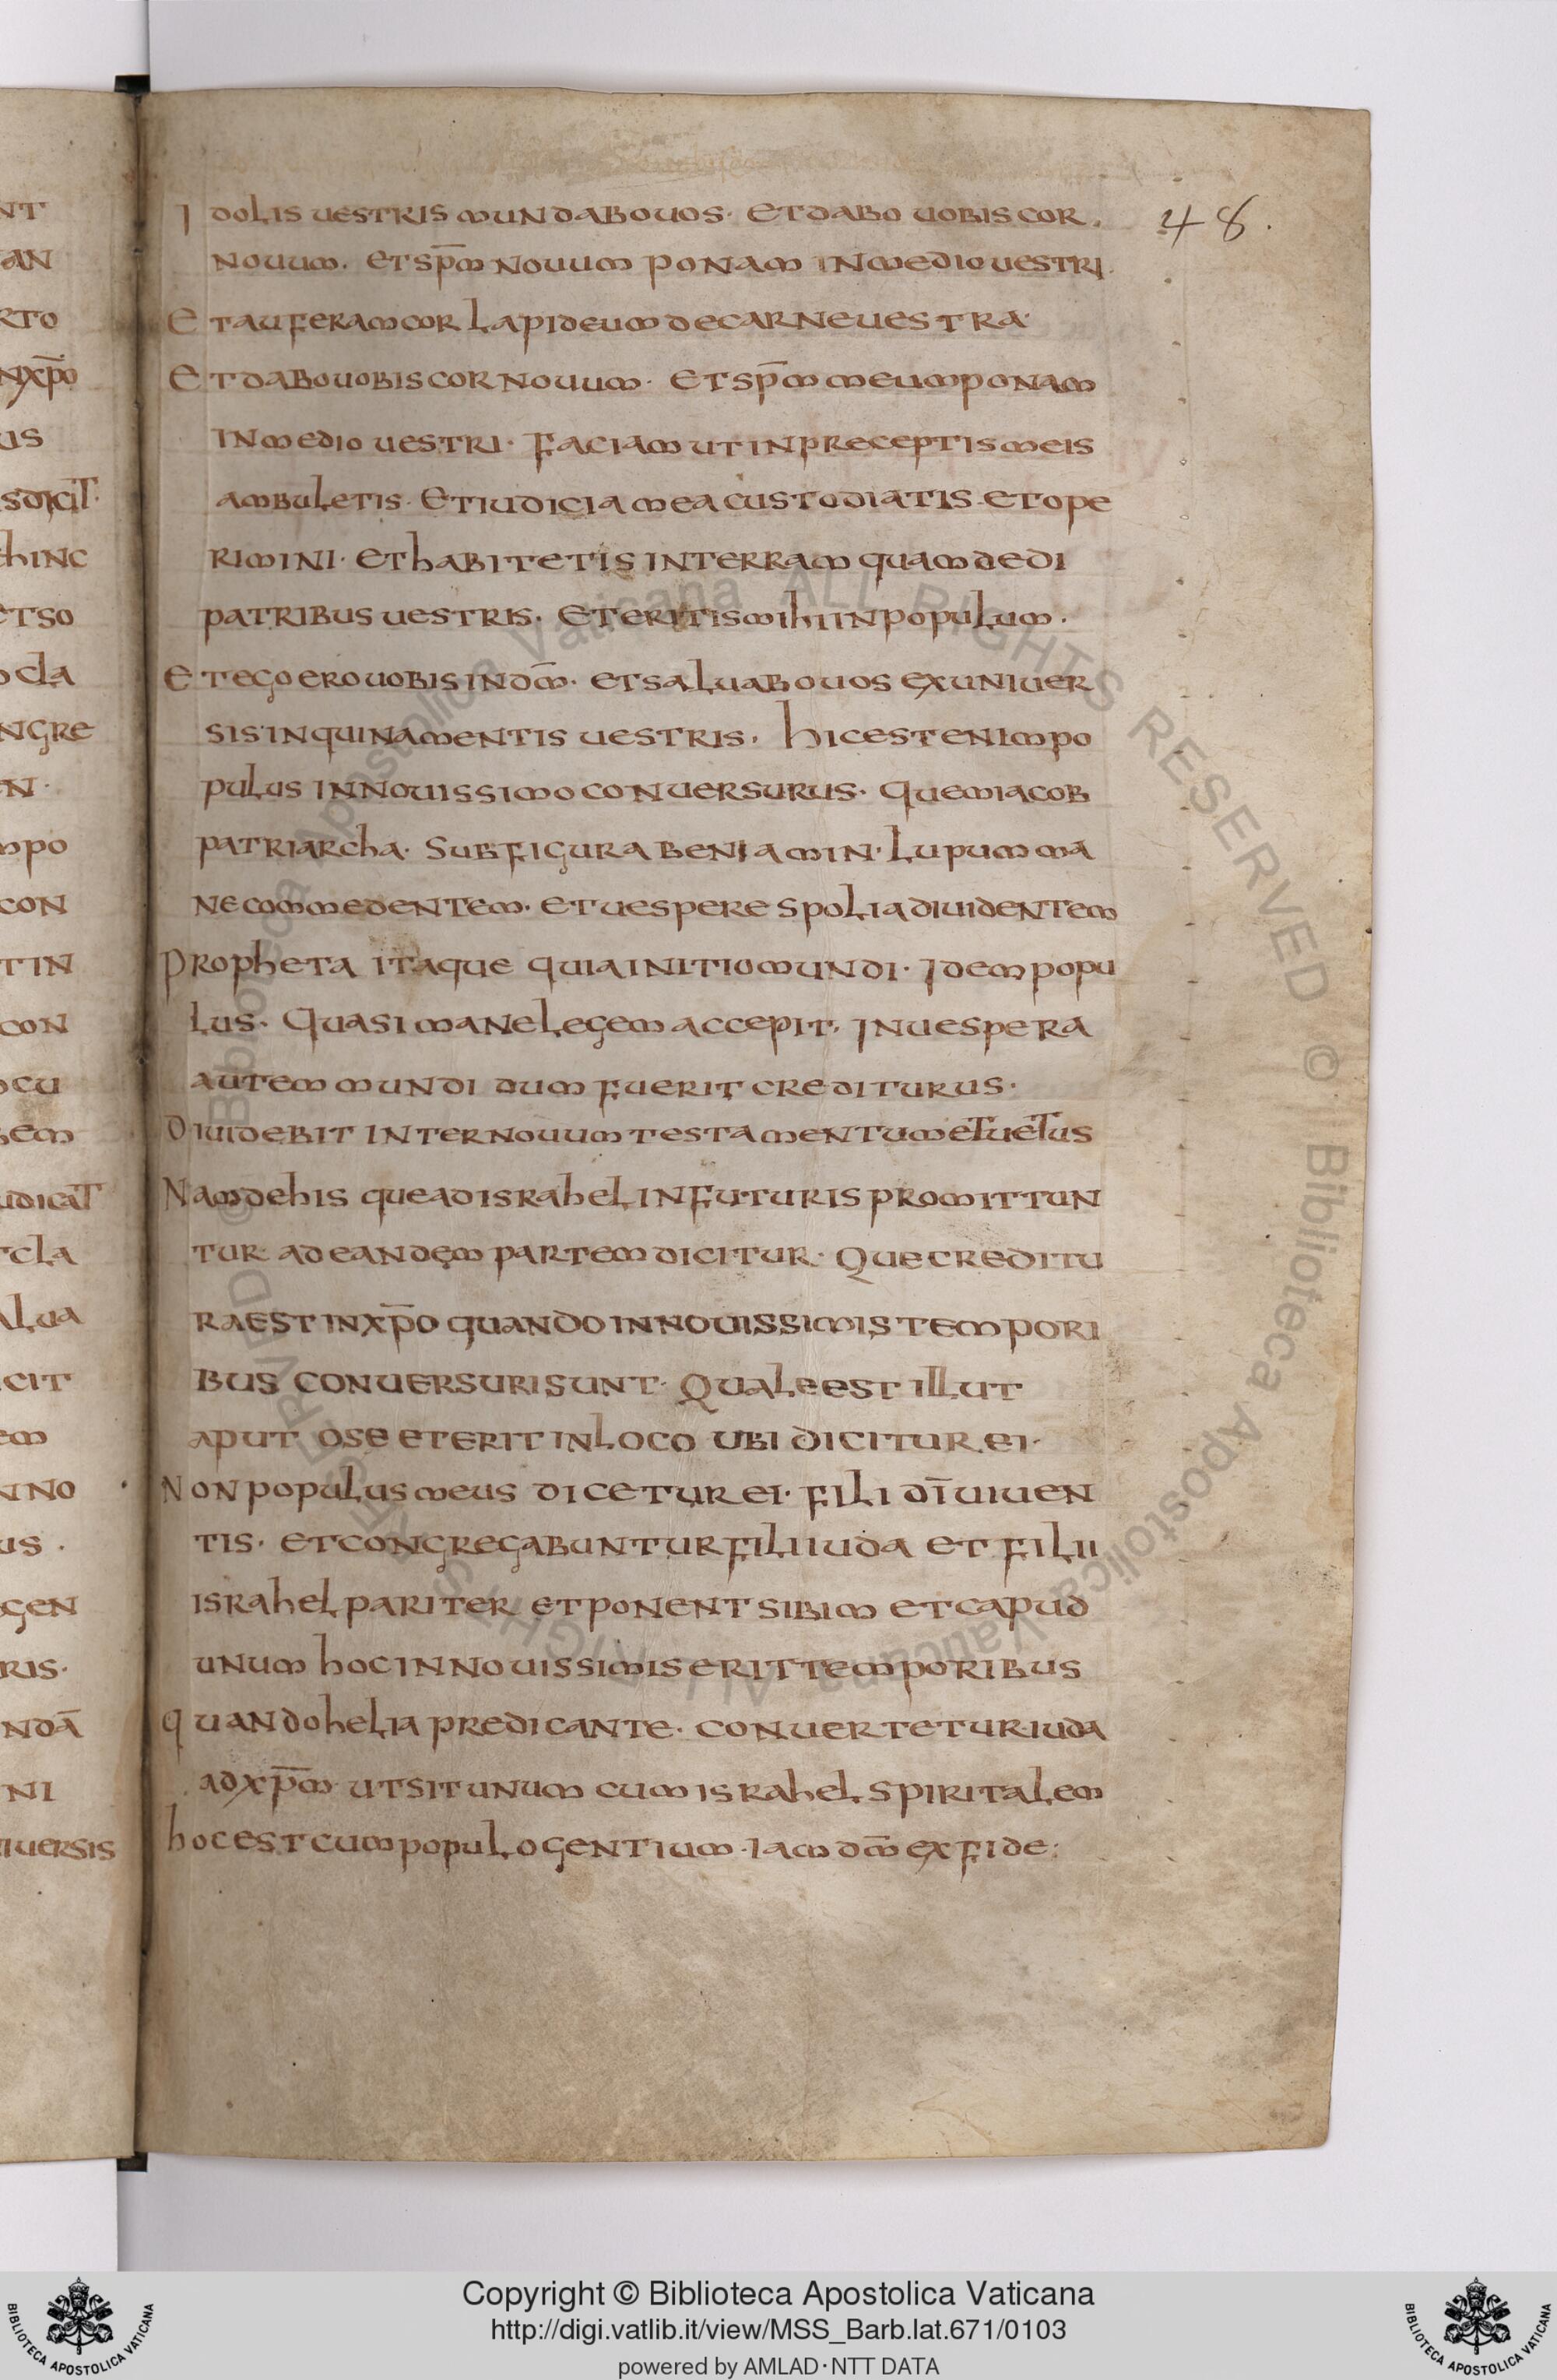 48.
Idolis uestris mundabo uos. et dabo uobis cor.
nouum. et sp̅m nouum ponam in medio uestri.
Et auferam cor lapideum de carne uestra.
Et dabo uobis cor nouum. et sp̅m meum ponam
in medio uestri. Faciam ut in preceptis meis
ambuletis. Et iudicia mea custodiatis. et ope
rimini. et habitetis in terram quam dedi
patribus uestris. et eritis mihi in populum.
Et ego ero uobis in dm̅. et saluabo uos ex uniuer
sis inquinamentis uestris. Hic est enim po
pulus in nouissimo conuersurus. Quem iacob
patriarcha. Sub figura beniamin. Lupum ma
ne commedentem. et uespere spolia diuidentem
Propheta itaque quia initio mundi. Idem popu
lus. Quasi mane legem accepit. In uespera
autem mundi dum fuerit crediturus.
Diuidebit inter nouum testamentum et uetus
Nam de his que ad israhel in futuris promittun
tur. ad eandem partem dicitur. Que creditu
ra est in xp̅o quando in nouissimis tempori
bus conuersuri sunt. Quale est illut
aput ose et erit in loco ubi dicitur ei.
Non populus meus dicetur ei. fili di̅ uiuen
tis. et congregabuntur filii iuda et filii
israhel pariter et ponent sibim et capud
unum hoc in nouissimis erit temporibus
quando helia predicante. conuertetur iuda
ad xp̅m. ut sit unum cum israhel spiritalem
hoc est cum populo gentium. iam dm̅ ex fide:
Copyright © Biblioteca Apostolica Vaticana
http://digi.vatlib.it/view/MSS_Barb.lat.671/0103
powered by AMLAD·NTT DATA
BIBLIOTECA APOSTOLICA VATICANA
BIBLIOTECA APOSTOLICA VATICANA